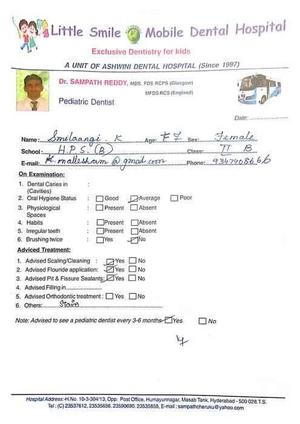 Little Smile Mobile Dental Hospital
Exclusive Dentistry for kids
A UNIT OF ASHWINI DENTAL HOSPITAL (Since 1997)
Dr. SAMPATH REDDY, MDS, FDS RCPS (Glasgow)
MFDS RCS (England)
Pediatric Dentist
Date:
Name: K Age: Sex: Female
School: H.P.S. (B) Class: B
E-mail: K.mallesham@gmail.com Phone:
On Examination:
1. Dental Caries in (Cavities) :
2. Oral Hygiene Status : Good Average Poor
3. Physiological Spaces : Present Absent
4. Habits : Present Absent
5. Irregular teeth : Present Absent
6. Brushing twice : Yes No
Adviced Treatment:
1. Advised Scaling/Cleaning : Yes No
2. Advised Flouride application: Yes No
3. Advised Pit & Fissure Sealants: Yes No
4. Advised Filling in
5. Advised Orthodontic treatment : Yes No
6. Others:
Note: Advised to see a pediatric dentist every 3-6 months- Yes No
Hospital Address:-H.No. 10-3-304/13, Opp. Post Office, Humayunnagar, Masab Tank, Hyderabad - 500 028.T.S.
Tel: (C) 23537612, 23535656, 23590690, 23535858, E-mail : sampathcheruku@yahoo.com